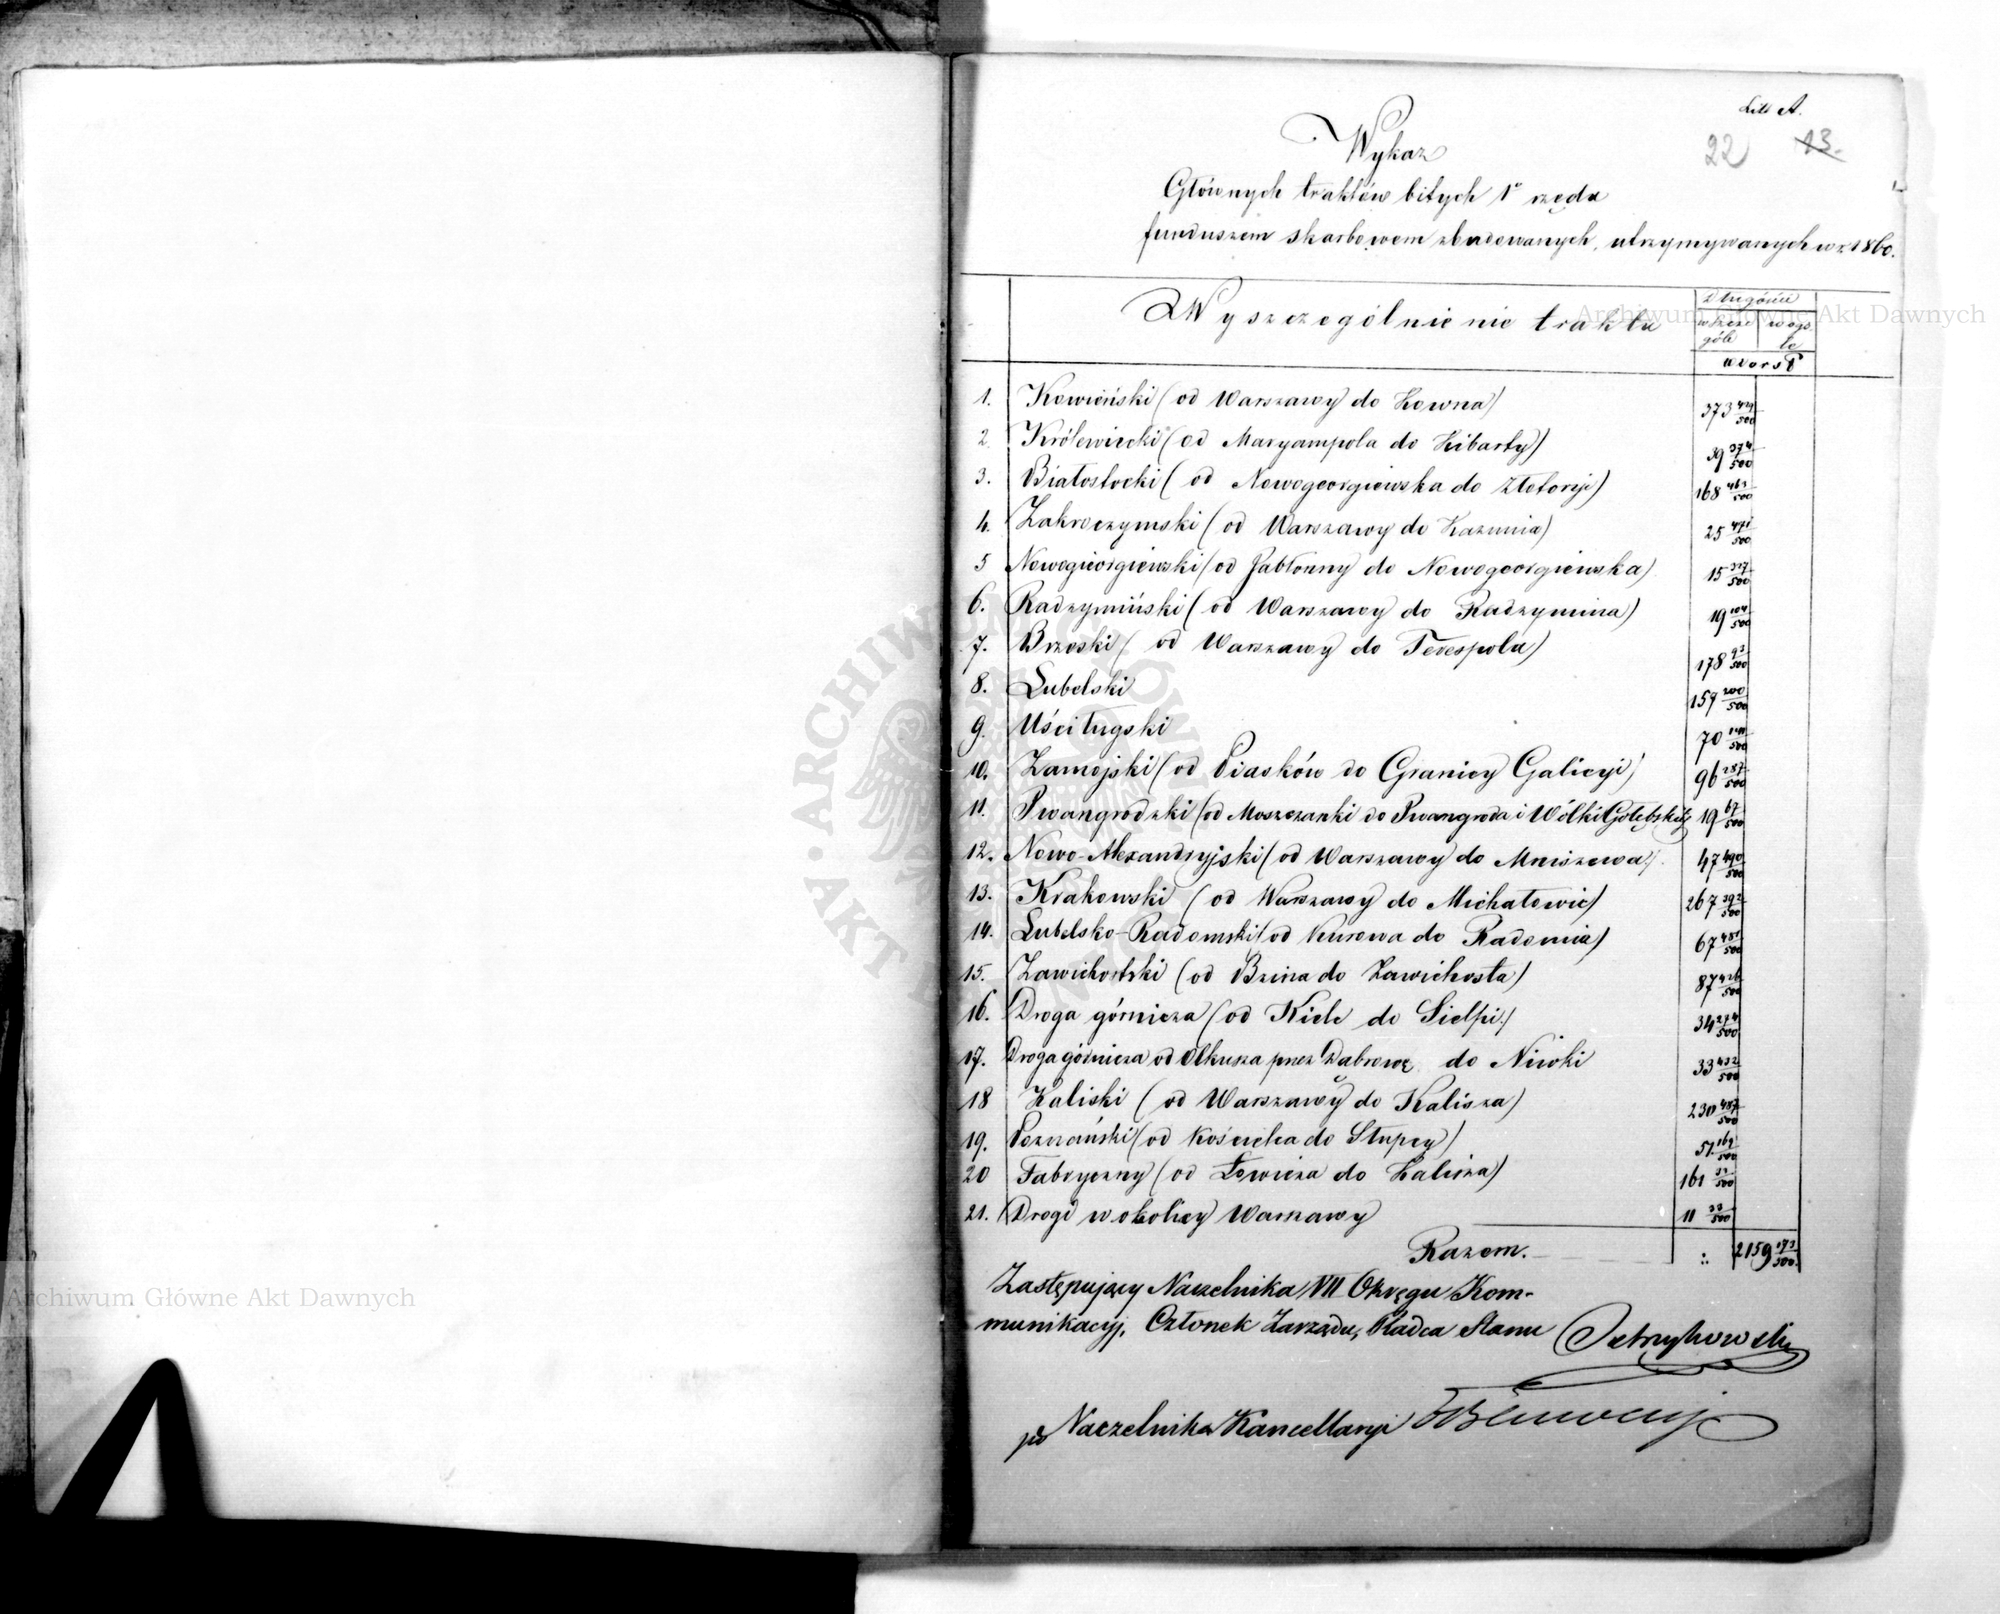 Litt A.
22 13.
Wykaz
Głównych traktów bitych 1º rzędu
funduszem skarbowem zbudowanych, utrzymywanych w r 1860.
Wyszczególnienie traktu
Długość
w szcze góle
w ogó le
worst
1. Kowieński (od Warszawy do Kowna) 373 424/500
2. Królewiecki (od Maryampola do Kibarty) 39 374/500
3. Białostocki (od Nowogeorgiewska do Złotoryi) 168 463/500
4. Zakroczymski (od Warszawy do Kazunia) 25 471/500
5 Nowogieorgiewski (od Jabłonny do Nowogeorgiewska) 15 327/500
6. Radzymiński (od Warszawy do Radzymina) 19 104/500
7. Brzeski (od Warszawy do Terespola) 178 93/500
8. Lubelski 159 200/500
9. Uściługski 70 /500
10. Zamojski (od Piasków do Granicy Galicyi) 96 287/500
11. Iwangrodzki (od Moszczanki do Iwangroda i Wólki Gołębskiej) 19 67/500
12. Nowo-Alexandryjski (od Warszawy do Mniszewa) 47 490/500
13. Krakowski (od Warszawy do Michałowic) 267 392/500
14. Lubelsko-Radomski (od Kurowa do Radomia) 67 451/500
15. Zawichostski (od Bzina do Zawichosta) 87 426/500
16. Droga górnicza (od Kielc do Sielpi) 34 274/500
17. Droga górnicza od Olkusza przez Dabrowę do Niwki 33 432/500
18 Kaliski (od Warszawy do Kalisza) 230 487/500
19. Poznański (od Kościelca do Słupcy) 51 169/500
20 Fabryczny (od Łowicza do Kalisza) 161 /500
21. Drogi w okolicy Warszawy 11 33/500
Razem. 2159 173/500
Zastępujący Naczelnika VII Okręgu Kom-
munikacyj, Członek Zarządu, Radca Stanu
p.o Naczelnika Kancellaryi
Archiwum Główne Akt Dawnych
Archiwum Główne Akt Dawnych